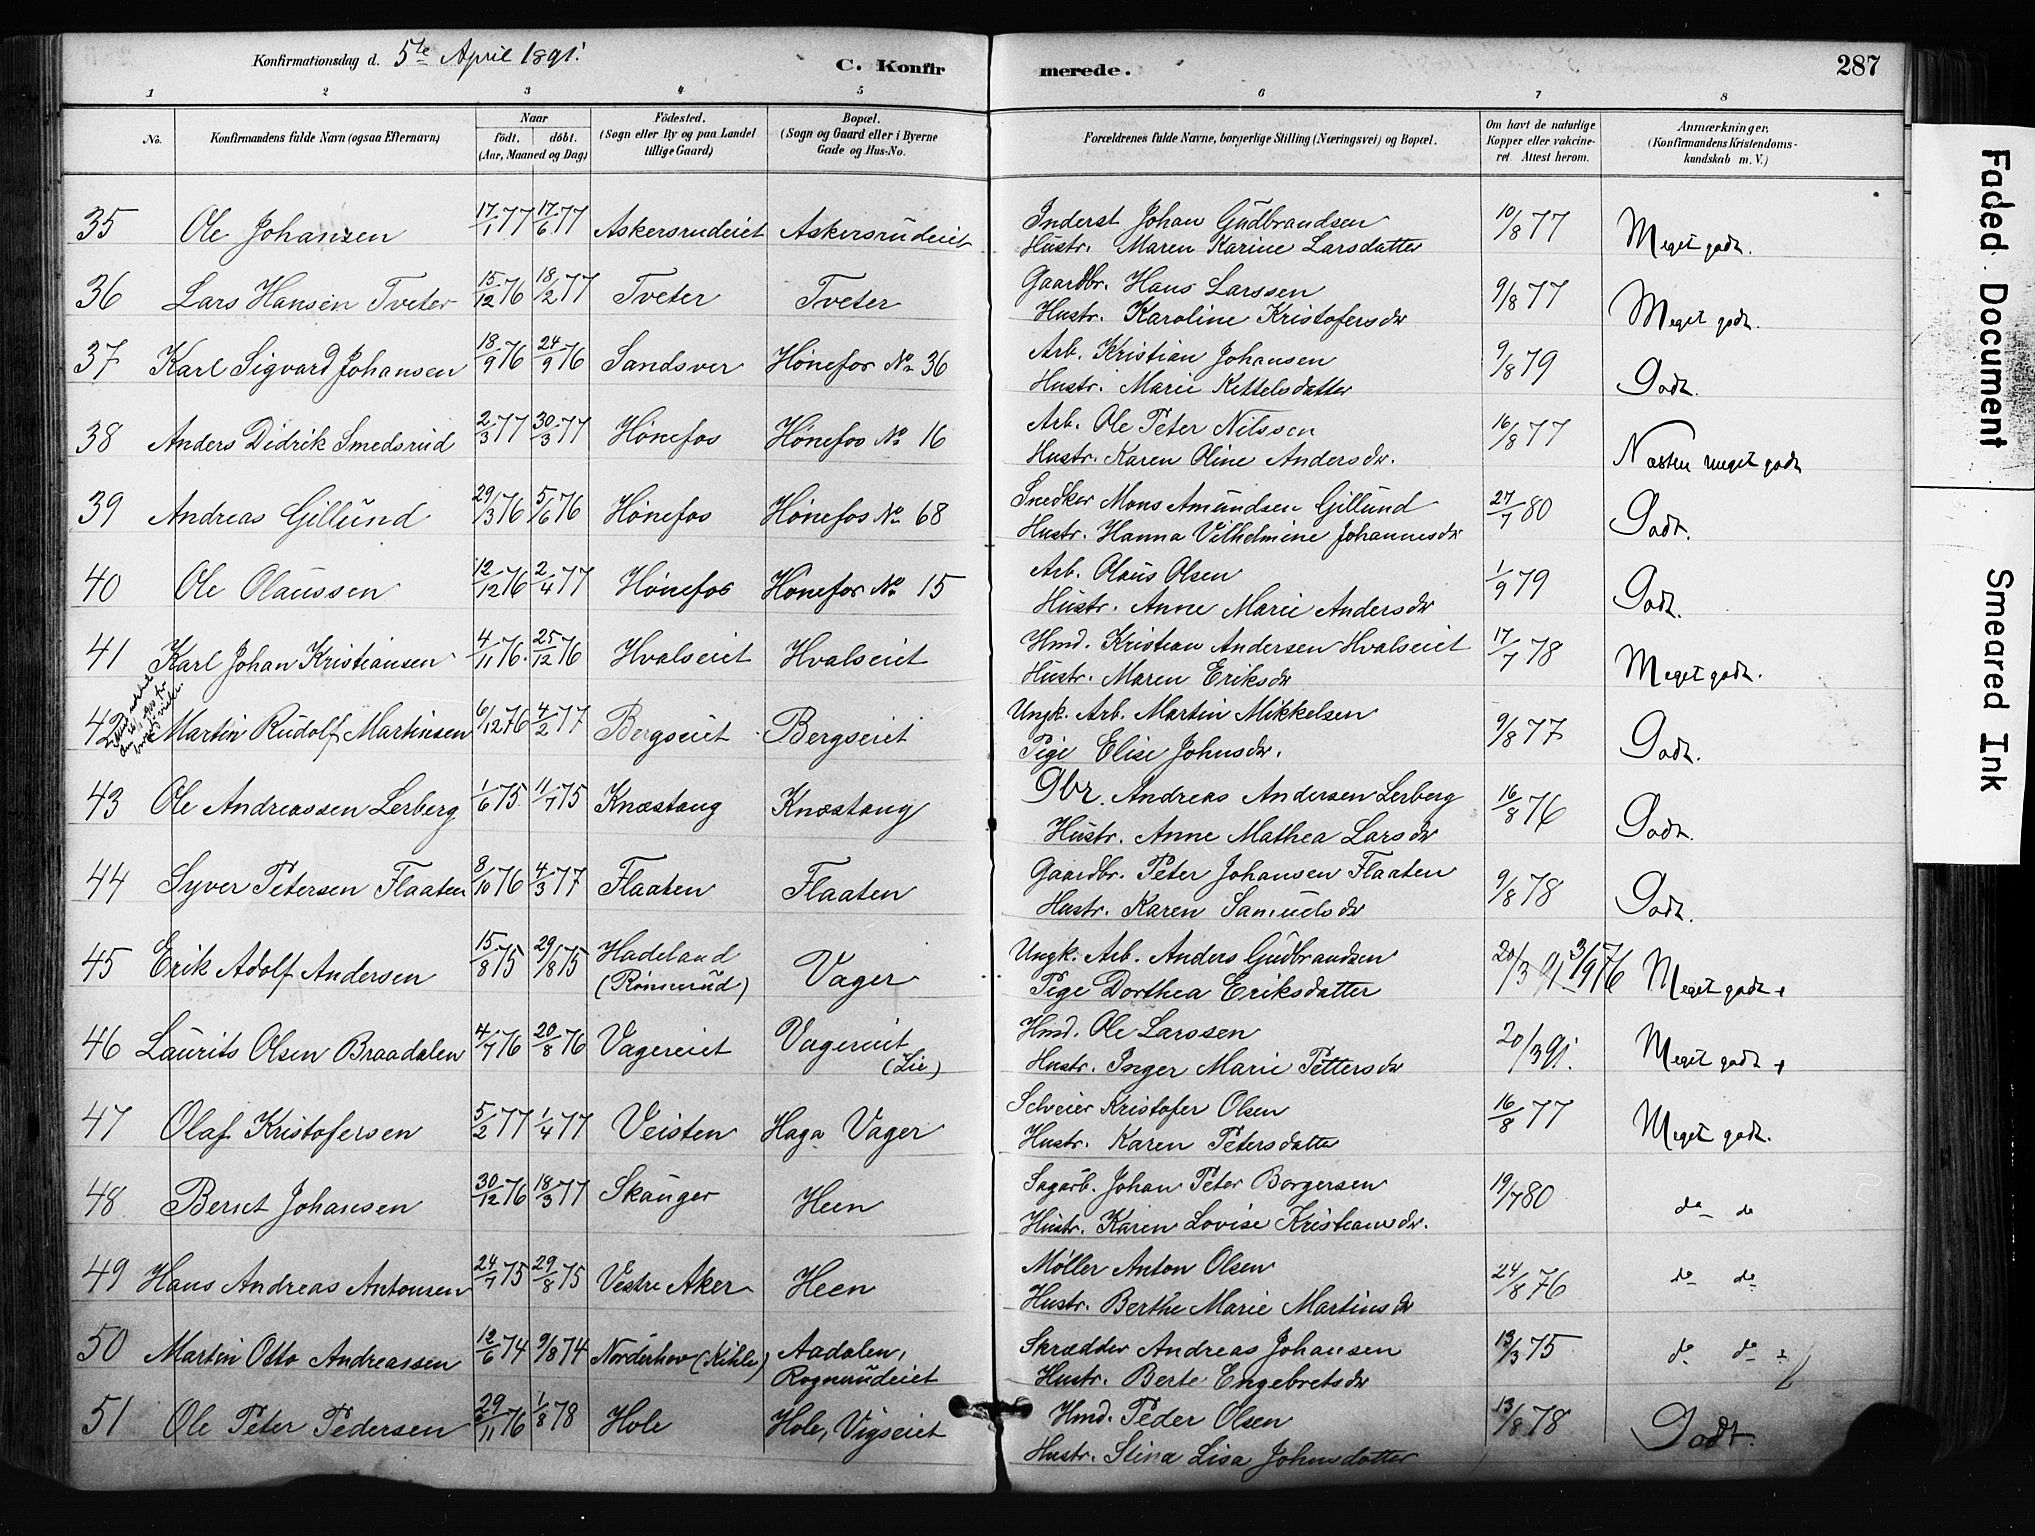 Konfirmationsdag d. 5te April 1891.
C. Konfirmerede.
287
1 2 3 4 5 6 7 8
No.
Konfirmandens fulde Navn (ogsaa Efternavn)
Naar
født. døbt.
(Aar, Maaned og Dag)
Fødested.
(Sogn eller By og paa Landet
tillige Gaard)
Bopæl.
(Sogn og Gaard eller i Byerne
Gade og Hus-No.
Forældrenes fulde Navne, borgerlige Stilling (Næringsvei) og Bopæl.
Om havt de naturlige
Kopper eller vakcine-
ret. Attest herom.
Anmærkninger.
(Konfirmandens Kristendoms-
kundskab m. V.)
35 Ole Johansen 17/1 77 17/6 77 Askersrudeiet Askersrudeiet Inderst Johan Gudbrandsen 10/8 77 Meget godt.
Hustr. Maren Karine Larsdatter
36 Lars Hansen Tveter 15/12 76 18/2 77 Tveter Tveter Gaardbr. Hans Larssen 9/8 77 Meget godt.
Hustr. Karoline Kristofersdr
37 Karl Sigvard Johansen 18/9 76 24/9 76 Sandsver Hønefos No 36 Arb. Kristian Johansen 9/8 79 Godt.
Hustr. Marie Kittelsdatter
38 Anders Didrik Smedsrud 2/3 77 30/3 77 Hønefos Hønefos No 16 Arb. Ole Peter Nilssen 16/8 77 Næsten meget godt
Hustr. Karen Oline Andersdr.
39 Andreas Gillund 29/3 76 5/6 76 Hønefos Hønefos No 68 Snedker Mons Amundsen Gillund 27/7 80 Godt.
Hustr. Hanna Vilhelmine Johannesdr
40 Ole Olaussen 12/12 76 2/4 77 Hønefos Hønefos No 15 Arb. Olaus Olsen 1/9 79 Godt.
Hustr. Anne Marie Andersdr
41 Karl Johan Kristiansen 4/11 76. 25/12 76 Hvalseiet Hvalseiet Hmd. Kristian Andersen Hvalseiet 17/7 78 Meget godt.
Hustr. Maren Eriksdr
42 Martin Rudolf Martinsen 6/12 76 4/2 77 Bergseiet Bergseiet Ungk. Arb. Martin Mikkelsen 9/8 77 Godt.
Pige Elise Johnsdr.
43 Ole Andreassen Lerberg 1/6 75 11/7 75 Knæstang Knæstang Gbr. Andreas Andersen Lerberg 16/8 76 Godt.
Hustr. Anne Mathea Larsdr
44 Syver Petersen Flaaten 8/10 76 4/3 77 Flaaten Flaaten Gaardbr. Peter Johansen Flaaten 9/8 78 Godt.
Hustr. Karen Samuelsdr
45 Erik Adolf Andersen 15/8 75 29/8 75 Hadeland Vager Ungk. Arb. Anders Gudbrandsen 20/3 91 3/9 76 Meget godt +
(Rønnerud) Pige Dorthea Eriksdatter
46 Laurits Olsen Braadalen 4/7 76 20/8 76 Vagereiet Vagereiet Hmd. Ole Larssen 20/3 91. Meget godt +
(Lie) Hustr. Inger Marie Pettersdr
47 Olaf Kristofersen 5/2 77 1/4 77 Veisten Haga Vager Selveier Kristofer Olsen 16/8 77 Meget godt.
Hustr. Karen Petersdatter
48 Bernt Johansen 30/12 76 18/3 77 Skauger Heen Sagarb. Johan Peter Borgersen 19/7 80 do do
Hustr. Karen Lovise Kristiansdr.
49 Hans Andreas Antonsen 24/7 75 29/8 75 Vestre Aker Heen Møller Anton Olsen 24/8 76 do do
Hustr. Berthe Marie Martinsdr
50 Martin Otto Andreassen 12/6 74 9/8 74 Norderhov (Kihle) Aadalen, Skrædder Andreas Johansen 13/3 75 do do
Rognerudeiet Hustr. Berte Engebretsdr
51 Ole Peter Pedersen 29/11 76 1/8 78 Hole Hole, Vigseiet Hmd. Peder Olsen 13/8 78 Godt.
Hustr. Stina Lisa Johnsdatter
Faded Document
Smeared Ink